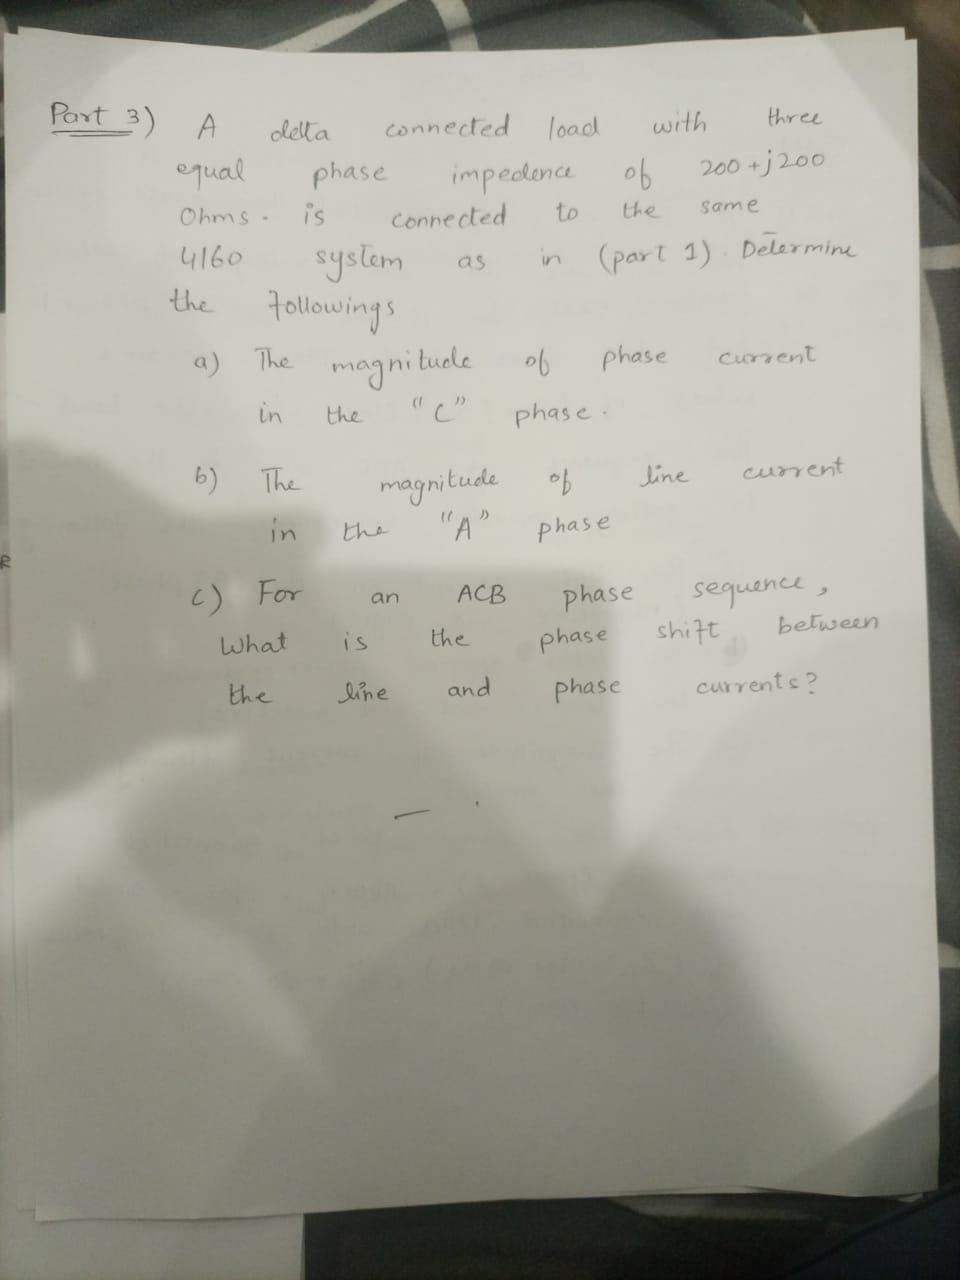 Part 3) A delta connected load with three
equal phase impedence of 200 + j200
Ohms. is connected to the same
4160 system as in (part 1). Determine
the followings
a) The magnitude of phase current
in the "C" phase.
b) The magnitude of line current
in the "A" phase
c) For an ACB phase sequence,
What is the phase shift between
the line and phase currents?
R